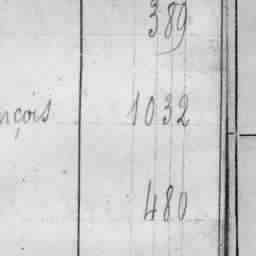 389
nçois 1032
480